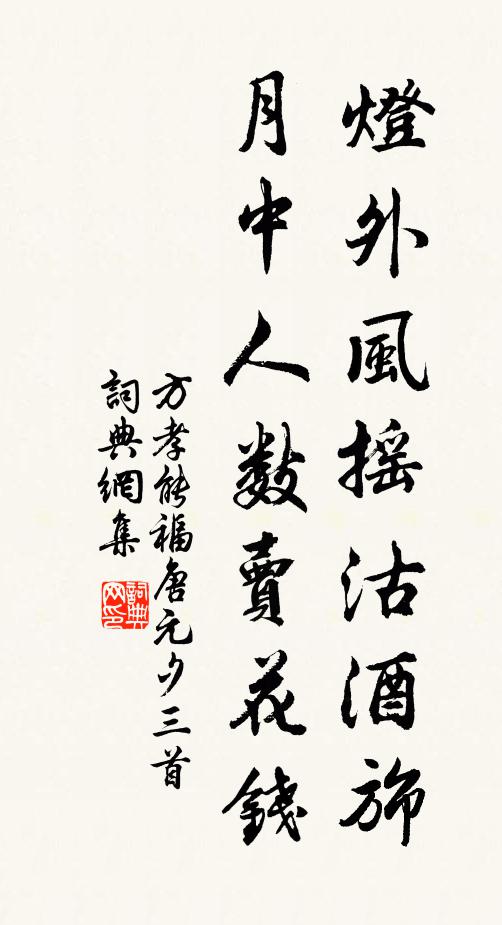 燈外風搖沽酒旆
月中人數賣花錢
方孝能福唐元夕三首
詞典網集
詞典网印